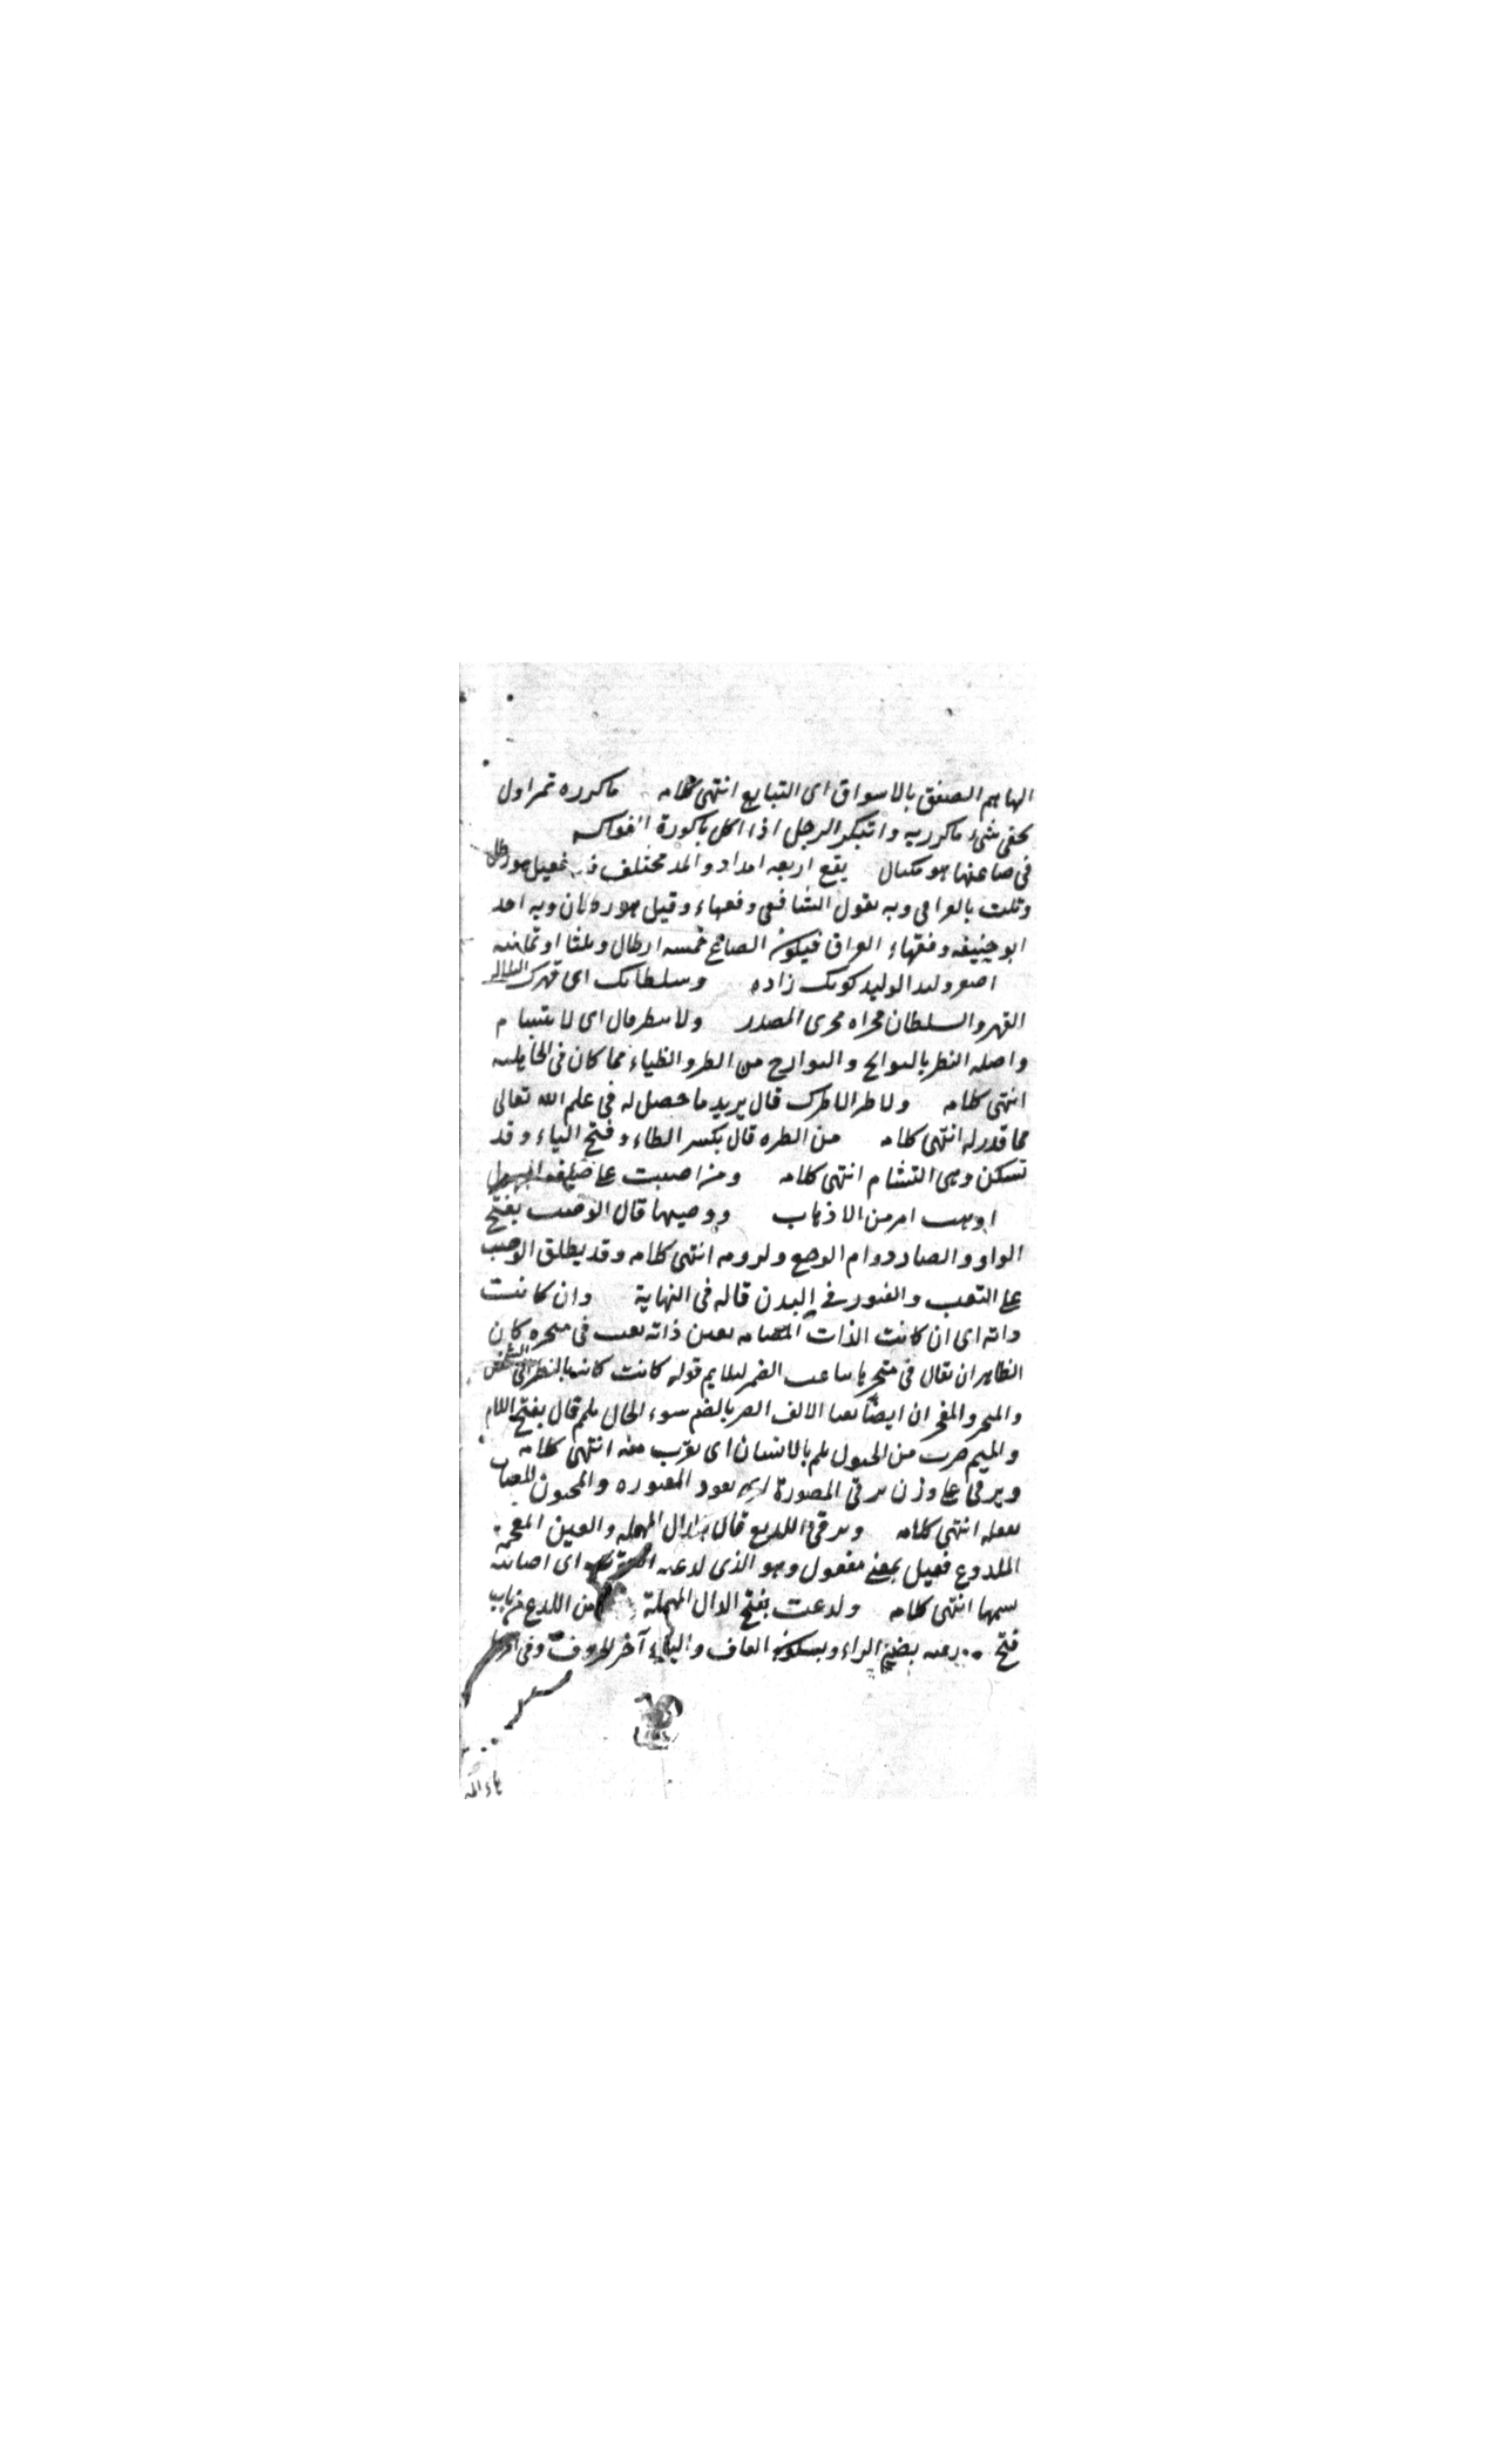 الهاهم الصفق بالاسواق اى التبايع انتهى كلامه باكوره ثمر اول
شىء باكوريه وابتكر الرجل اذا اكل باكورة الفواكه
فى صاعها هو مكيال يقع اربعه امداد والمد مختلف فيه فقيل هو رطل
وثلث بالعراقى وبه يقول الشافعى وفقهاء وقيل هو رطلان وبه اخذ
ابو حنيفه وفقهاء العراق فيكون الصاع خمسه ارطال وثلثا او ثمانيه
اصغر وليد الوليد كوچك زاده وسلطانك اى قهرك
القهر والسلطان مجراه مجرى المصدر ولا يتطير قال اى لا يتشاءم
واصله التطير بالسوانح والبوارح من الطير والظباء مما كان فى الجاهليه
انتهى كلامه ولا طير الا طيرك قال يريد ما حصل له فى علم الله تعالى
مما قدر له انتهى كلامه من الطيره قال بكسر الطاء وفتح الياء وقد
تسكن وهى التشاءم انتهى كلامه ومن اصيبت على
اذهب امر من الاذهاب ووصبها قال الوصب بفتح
الواو والصاد دوام الوجع ولزومه انتهى كلامه وقد يطلق الوصب
على التعب والفتور فى البدن قاله فى النهاية وان كانت
دابه اى ان كانت الذات المصابه بعين دابه نفث فى منخره كان
الظاهر ان يقال فى منخرها بتانيث الضمير ليلايم قوله كانت كانه بالنظر الى الشخص
والمنخر والمنخران ايضا ثقبا الانف الضر بالضم سوء الحال يلم قال بفتح اللام
والميم ضرب من الجنون يلم بالانسان اى يقرب منه انتهى كلامه
ويرقى على وزن يرمى
انتهى كلامه ويرقى اللديغ قال بالدال المهمله والغين المعجمة
الملدوغ فعيل بمعنى مفعول وهو الذى لدغته اى اصابته
بسمها انتهى كلامه ولدغت بفتح الدال المهملة من اللدغ من باب
فتح رقيه بضم الراء وبسكون القاف والياء آخر الحروف وفى